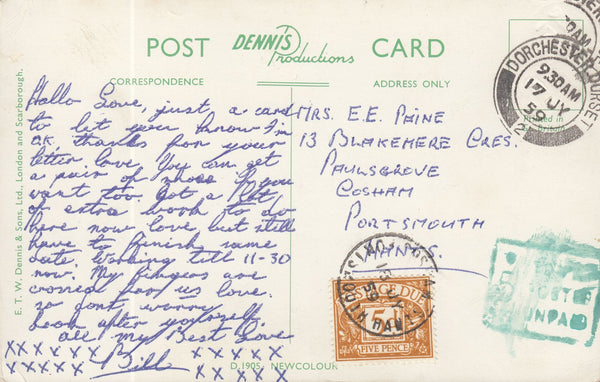 POST DENNIS Productions CARD
CORRESPONDENCE
ADDRESS ONLY
E. T. W. Dennis & Sons, Ltd., London and Scarborough.
Hallo Love, just a card
to let you know I'm
O.K. thanks for your
letter love. You can get
a pair of shoes if you
want too. Got a lot
of extra work to do
here now love but still
have to finish same
date. Working till 11-30
now. My fingers are
crossed for us love.
so dont worry
look after yourself.
all my Best Love
xx xxxx Bill xxxxxx
xxxxx xxxxxx
MRS. E. E. PAINE
13 BLAKEMERE CRES.
PAULSGROVE
COSHAM
PORTSMOUTH
HANTS.
DORCHESTER DORSET
9 30AM
17 JY
59
Printed in
Gt. Britain
POSTAGE DUE
5D
FIVE PENCE
COSHAM
59
5D
POSTED
UNPAID
D.1905 NEWCOLOUR